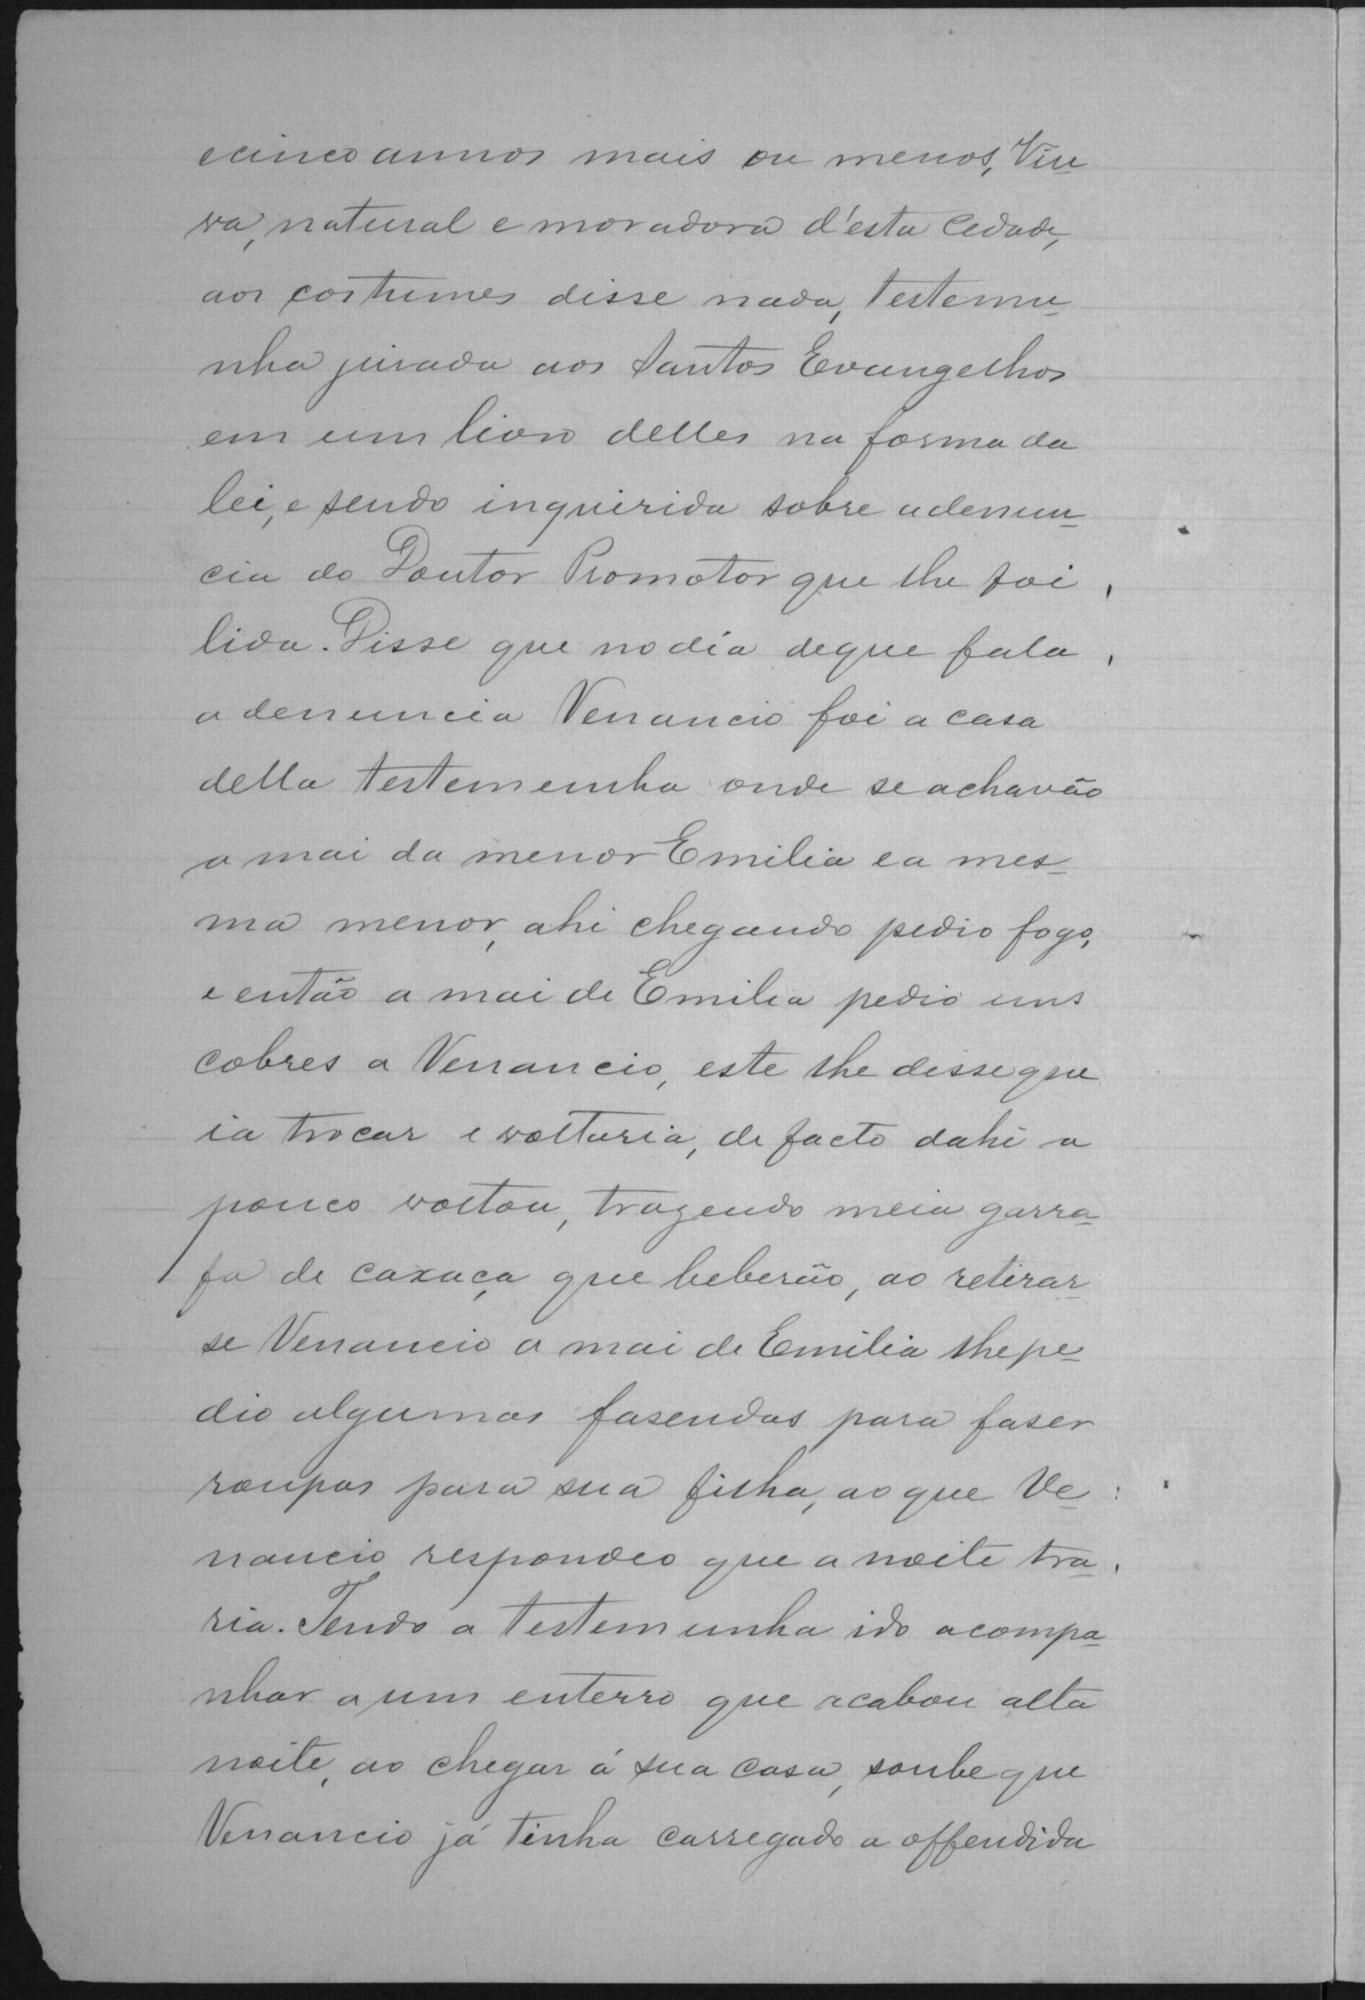 e cinco annos mais ou menos, Viu-
va, natural e moradora d'esta Cedade,
aos costumes disse nada, testemu-
nha jurada aos Santos Evangelhos
em um livro delles na forma da
lei, e sendo inquirida sobre a denun-
cia do Doutor Promotor que lhe foi
lida. Disse que no dia de que fala
a denuncia Venancio foi a casa
della testemunha onde se achavão
a mai da menor Emilia e a mes-
ma menor, ahi chegando pedio fogo,
e então a mai de Emilia pedio uns
cobres a Venancio, este lhe disse que
ia trocar e voltaria, de facto dahi a
pouco voltou, trazendo meia garra-
fa de caxaça que beberão, ao retirar-
se Venancio a mai de Emilia lhe pe-
dio algumas fasendas para faser
roupas para sua filha, ao que Ve-
nancio respondeo que a noite tra-
ria. Tendo a testemunha ido acompa-
nhar a um enterro que acabou alta
noite, ao chegar á sua casa, soube que
Venancio já tinha carregado a offendida